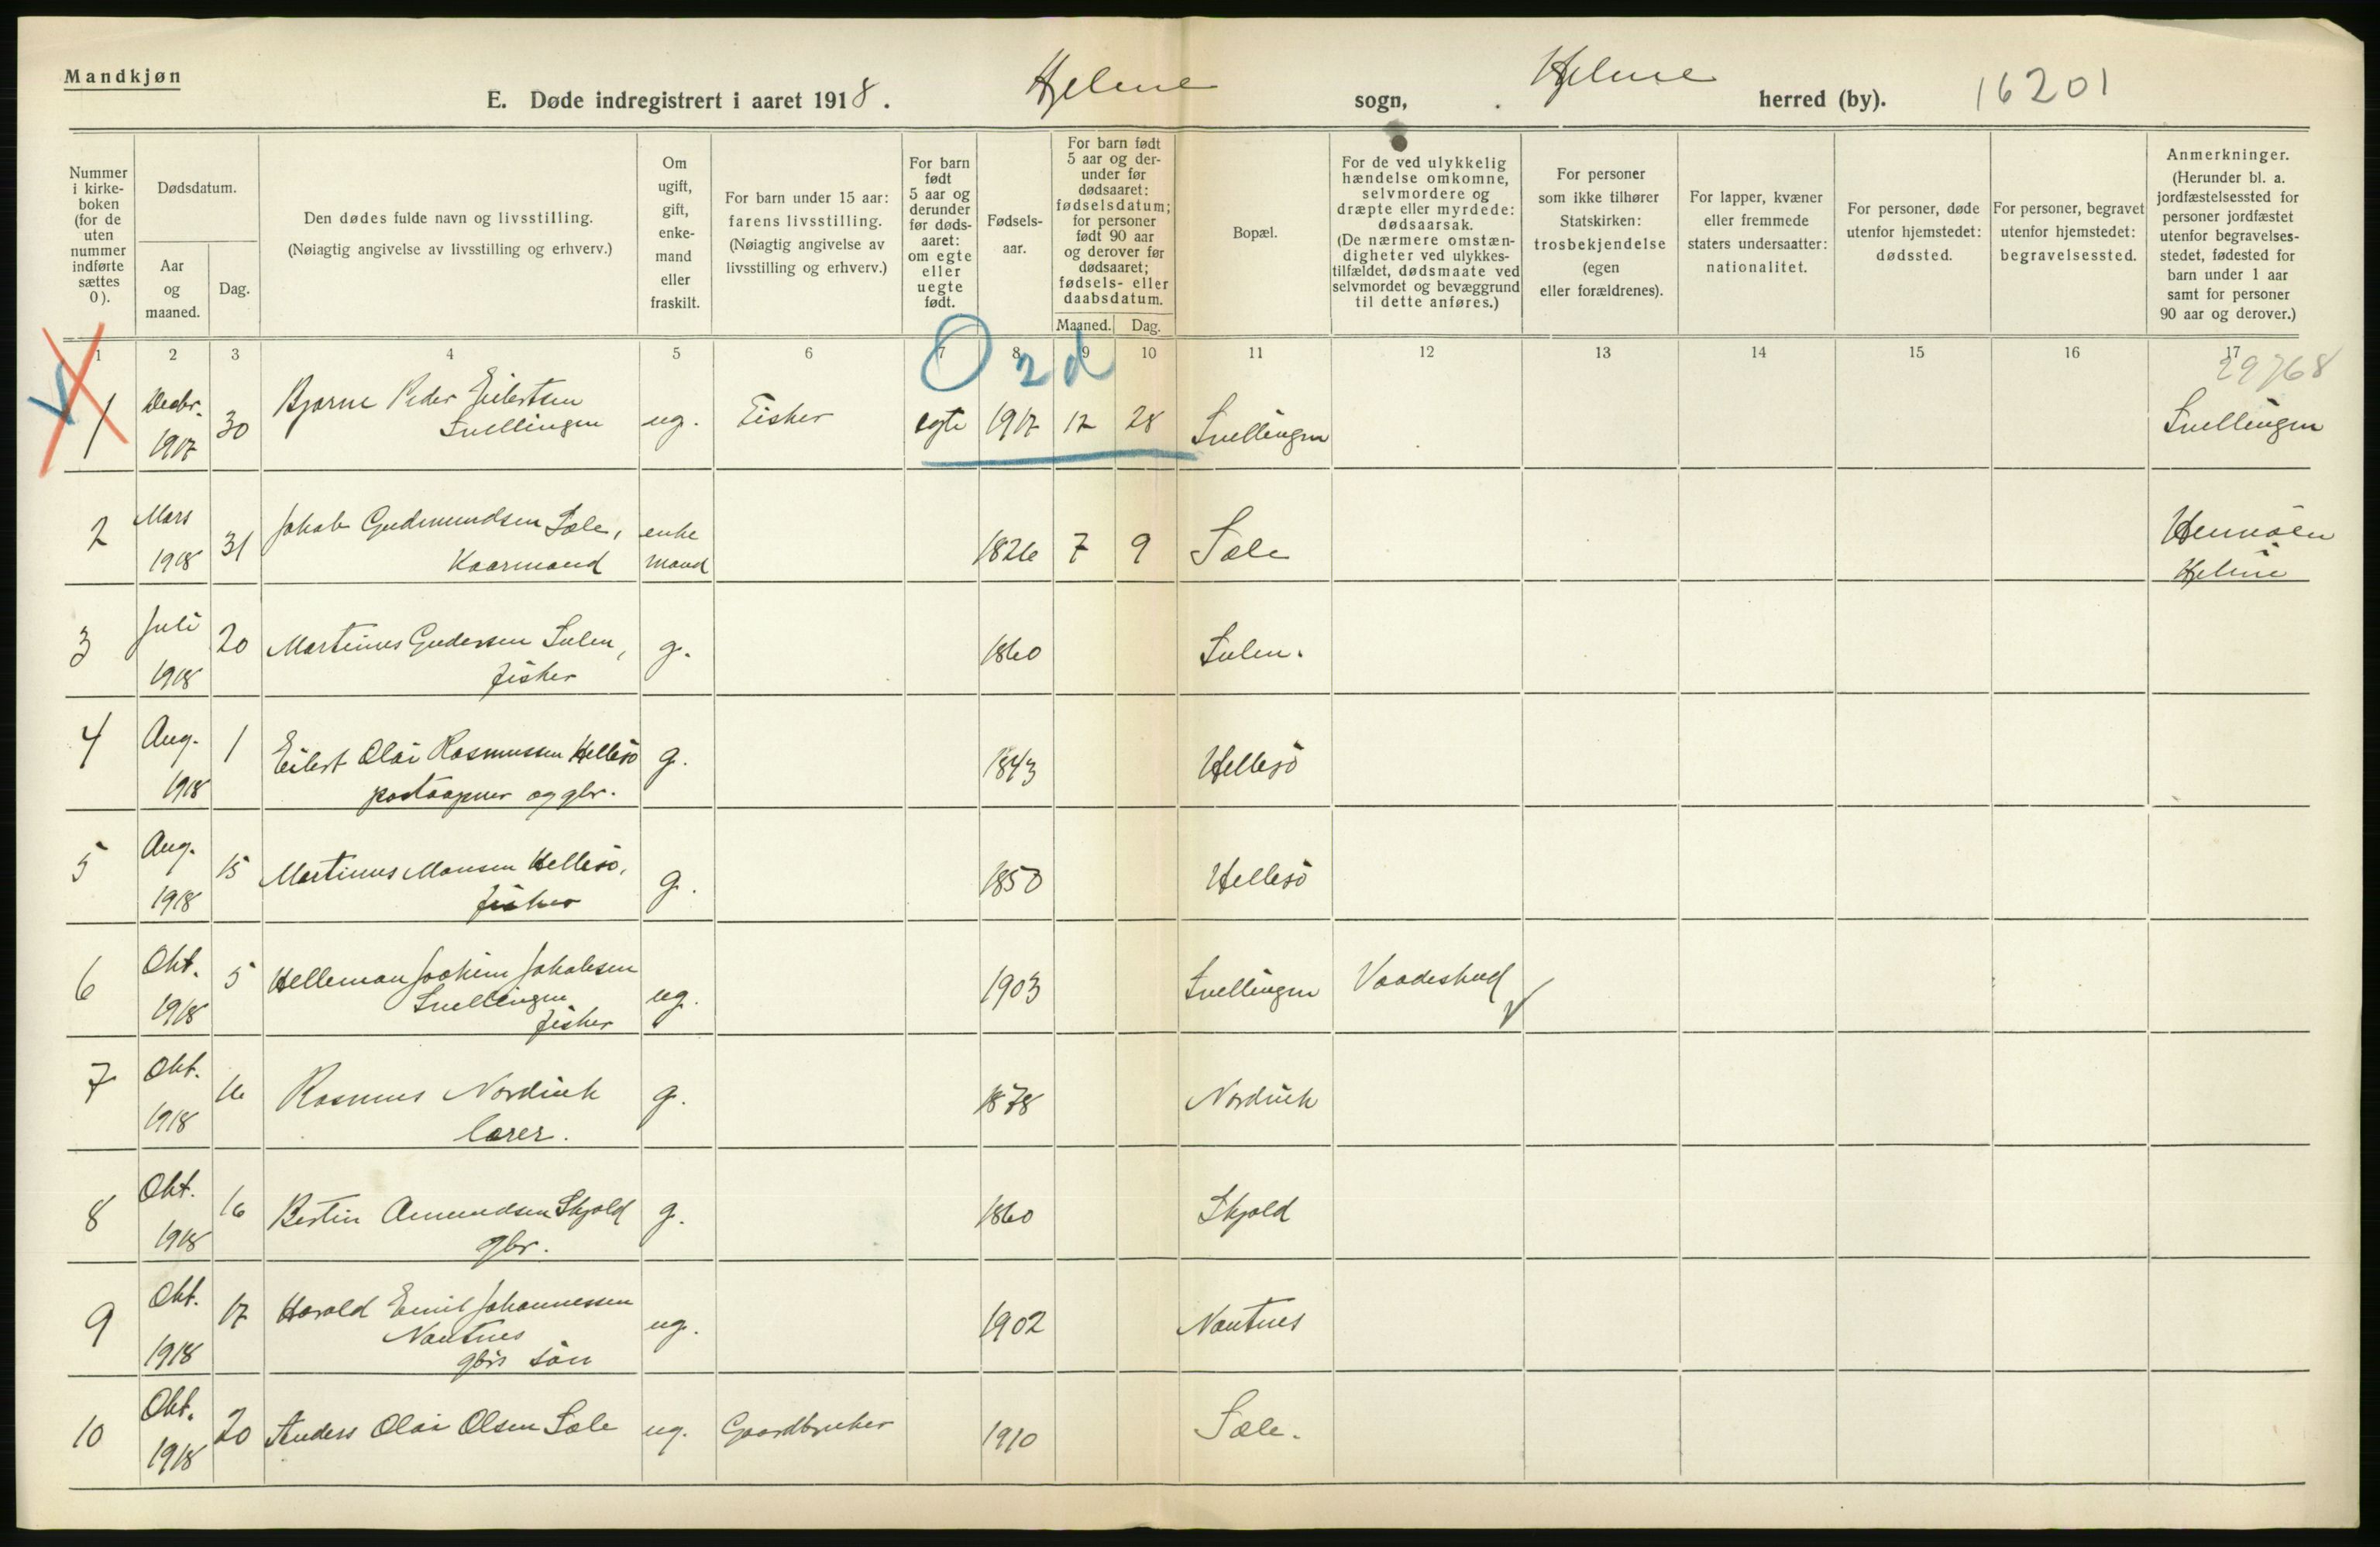 Mandkjøn
E. Døde indregistrert i aaret 1918. Hjelme sogn, Hjelme herred (by). 16201
Nummer i kirke-boken (for de uten nummer indførte sættes 0).
Dødsdatum.
Aar og maaned.
Dag.
Den dødes fulde navn og livsstilling.
(Nøiagtig angivelse av livsstilling og erhverv.)
Om ugift, gift, enke-mand eller fraskilt.
For barn under 15 aar: farens livsstilling.
(Nøiagtig angivelse av livsstilling og erhverv.)
For barn født 5 aar og derunder før døds-aaret: om egte eller uegte født.
Fødsels-aar.
For barn født 5 aar og der-under før dødsaaret: fødselsdatum; for personer født 90 aar og derover før dødsaaret; fødsels- eller daabsdatum.
Maaned. Dag.
Bopæl.
For de ved ulykkelig hændelse omkomne, selvmordere og dræpte eller myrdede: dødsaarsak.
(De nærmere omstæn-digheter ved ulykkes-tilfældet, dødsmaate ved selvmordet og bevæggrund til dette anføres.)
For personer som ikke tilhører Statskirken: trosbekjendelse (egen eller forældrenes).
For lapper, kvæner eller fremmede staters undersaatter: nationalitet.
For personer, døde utenfor hjemstedet: dødssted.
For personer, begravet utenfor hjemstedet: begravelsessted.
Anmerkninger.
(Herunder bl. a. jordfæstelsessted for personer jordfæstet utenfor begravelses-stedet, fødested for barn under 1 aar samt for personer 90 aar og derover.)
1 2 3 4 5 6 7 8 9 10 11 12 13 14 15 16 17
0 2 d 29768
1 Decbr. 1917 30 Bjarne Peder Eilertsen Svellingen ug. Fisker egte 1917 12 28 Svellingen Svellingen
2 Mars 1918 31 Jakob Gudmundsen Sæle, Kaarmand enke mand 1826 7 9 Sæle Hjelme
3 Juli 1918 20 Martinus Sulen, fisker g. 1860 Sulen.
4 Aug. 1918 1 Eilert Olai Rasmussen Hellesö postaapner og gbr. g. 1843 Hellesö
5 Aug. 1918 15 Martinus Monsen Hellesö, fisker g. 1850 Hellesö
6 Okt. 1918 5 Helleman Joakim Jakobsen Svellingen fisker ug. 1903 Svellingen Vaadeskud
7 Okt. 1918 16 Rasmus Nordvik lærer. g. 1878 Nordvik
8 Okt. 1918 16 Bertin Amundsen Skjold gbr. g. 1860 Skjold
9 Okt. 1918 17 Harald Emil Johannessen Nautnes gbrs sön ug. 1902 Nautnes
10 Okt. 1918 20 Anders Olai Olsen Sæle ug. Gaardbruker 1910 Sæle.